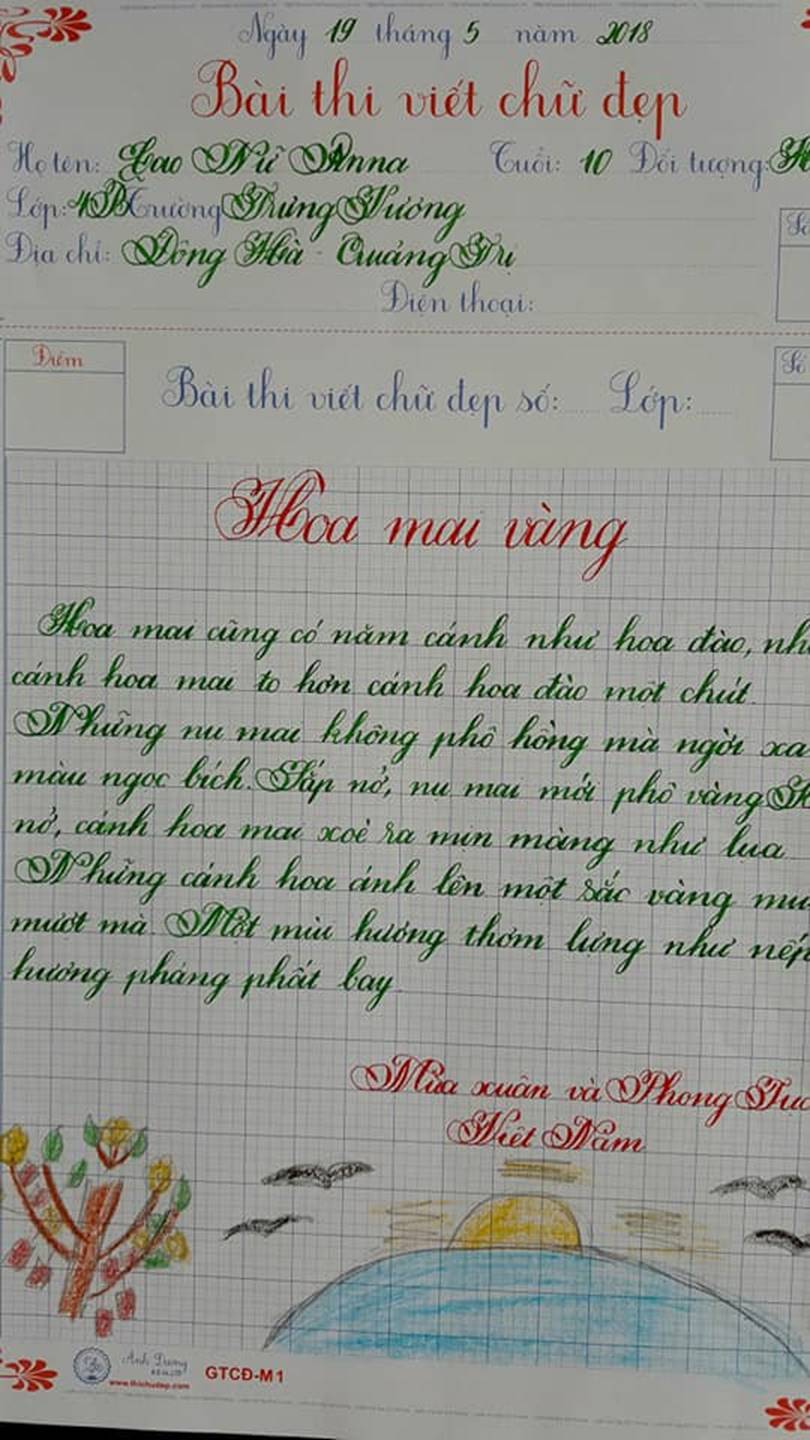 Ngày 19 tháng 5 năm 2018
Bài thi viết chữ đẹp
Họ tên: Cao Nữ Anna Tuổi: 10 Đối tượng:
Lớp: 4B Trường Trưng Vương
Địa chỉ: Đông Hà - Quảng Trị
Điện thoại:
Điểm
Bài thi viết chữ đẹp số: Lớp:
Hoa mai vàng
Hoa mai cũng có năm cánh như hoa đào,
cánh hoa mai to hơn cánh hoa đào một chút.
Những nụ mai không phô hồng mà ngời
màu ngọc bích. Sắp nở, nụ mai mới phô vàng
nở, cánh hoa mai xoè ra mịn màng như lụa
Những cánh hoa ánh lên một sắc vàng
mượt mà. Một mùi hương thơm lựng như nếp
hương phảng phất bay
Mùa xuân và Phong Tục
Việt Nam
Ánh Dương
www.thichudep.com
GTCĐ-M1